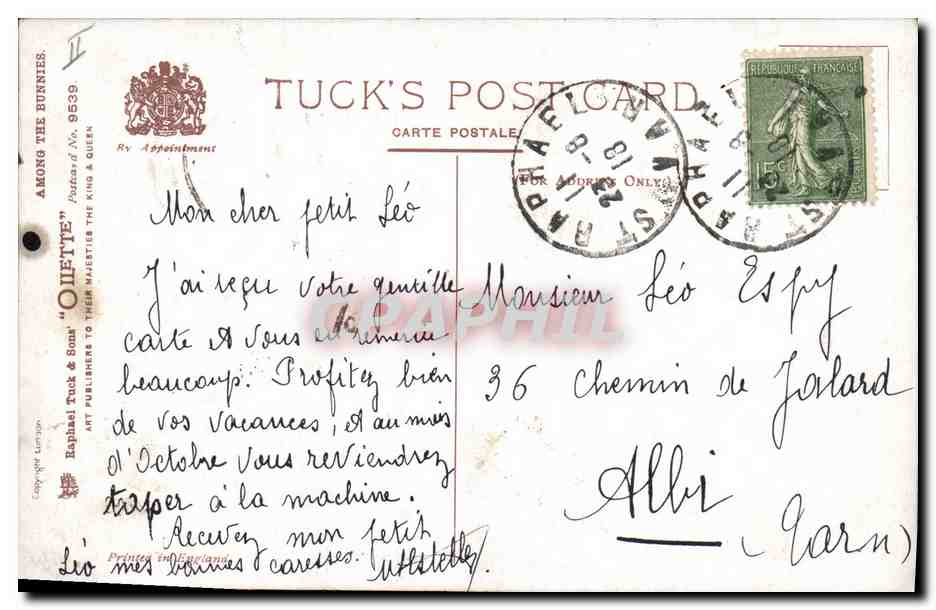 II
AMONG THE BUNNIES.
Postcard No. 9539.
Raphael Tuck & Sons' "OILETTE"
ART PUBLISHERS TO THEIR MAJESTIES THE KING & QUEEN
Copyright London
By Appointment
TUCK'S POST CARD
CARTE POSTALE
(FOR ADDRESS ONLY.)
RÉPUBLIQUE FRANÇAISE
15
ST RAPHAEL VAR
23 -8 18
Mon cher petit Léo
J'ai reçu votre gentille
carte et vous en remercie
beaucoup. Profitez bien
de vos vacances, et au mois
d'Octobre vous reviendrez
taper à la machine.
Recevez mon petit
Léo mes bonnes caresses.
Monsieur Léo Espy
36 Chemin de Jalard
Albi
(Tarn)
Printed in England
CPAPHIL